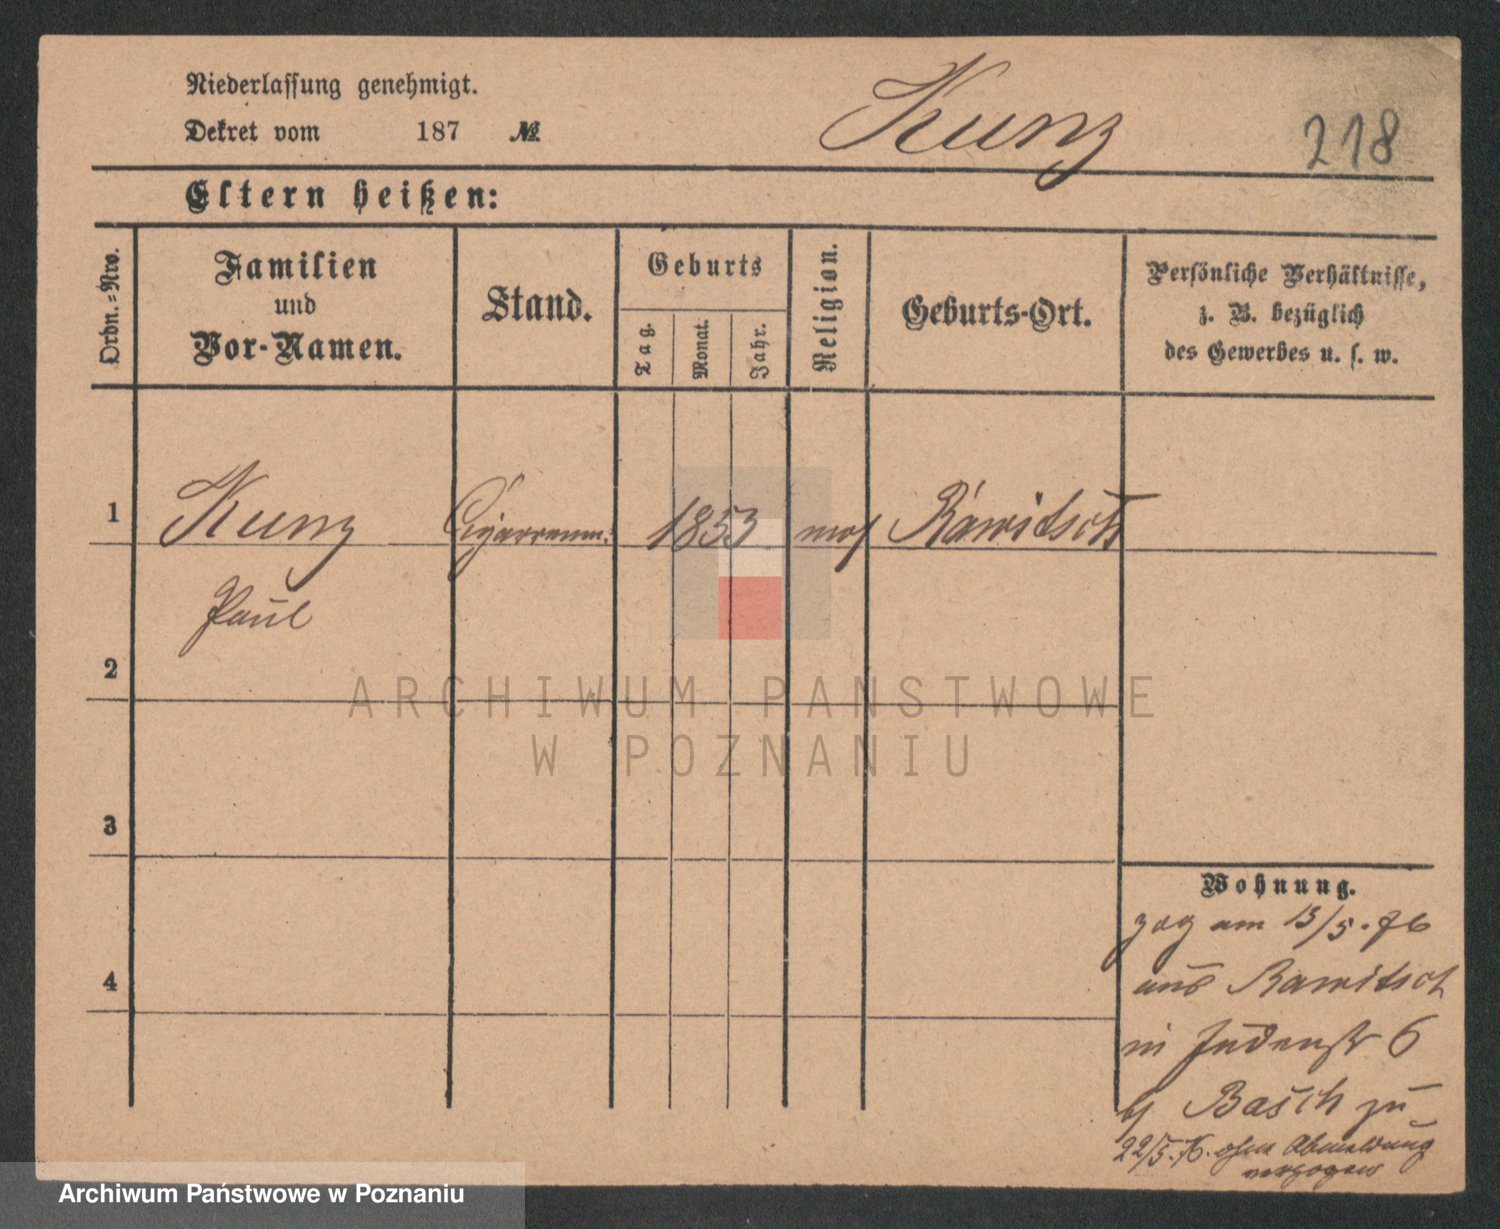 Niederlassung genehmigt.
Dekret vom 187 №
Kunz
218
Eltern heißen:
Ordn.=Nro.
Familien
und
Vor-Namen.
Stand.
Geburts
Tag.
Monat.
Jahr.
Religion.
Geburts-Ort.
Persönliche Verhältnisse,
z. B. bezüglich
des Gewerbes u. s. w.
1 Kunz Cigarrenm. 1853 mos Rawitsch
Paul
2
3
4
Wohnung.
zog am 13/5. 76
aus Rawitsch
in Judenstr 6
bj Basch zu
22/5. 76. ohne Abmeldung
verzogen
ARCHIWUM PAŃSTWOWE
W POZNANIU
Archiwum Państwowe w Poznaniu